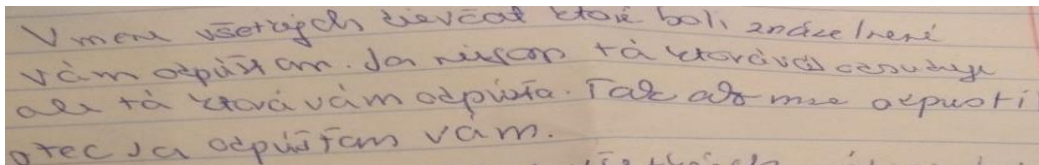 V mene všetkých dievčat ktoré boli znásilnené
vám odpúšťam. Ja niesom tá ktorá vás odsudzuje
ale tá ktorá vám odpúšťa. Tak ako mne odpustil
otec ja odpúšťam vám.